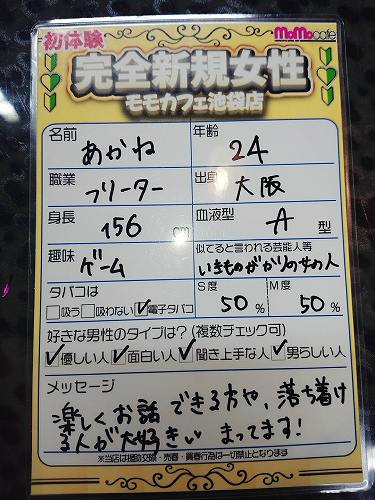 初体験
MoMocafe
完全新規女性
モモカフェ池袋店
名前 あかね 年齢 24
職業 フリーター 出身 大阪
身長 156 cm 血液型 A 型
趣味 ゲーム 似てると言われる芸能人等 いきものがかりの女の人
タバコは S度 M度
吸う 吸わない 電子タバコ 50 % 50 %
好きな男性のタイプは?(複数チェック可)
優しい人 面白い人 聞き上手な人 男らしい人
メッセージ
楽しくお話できる方や、落ち着け
る人が大好きぃ まってます!
※当店は援助交際・売春・買春行為は一切禁止となります